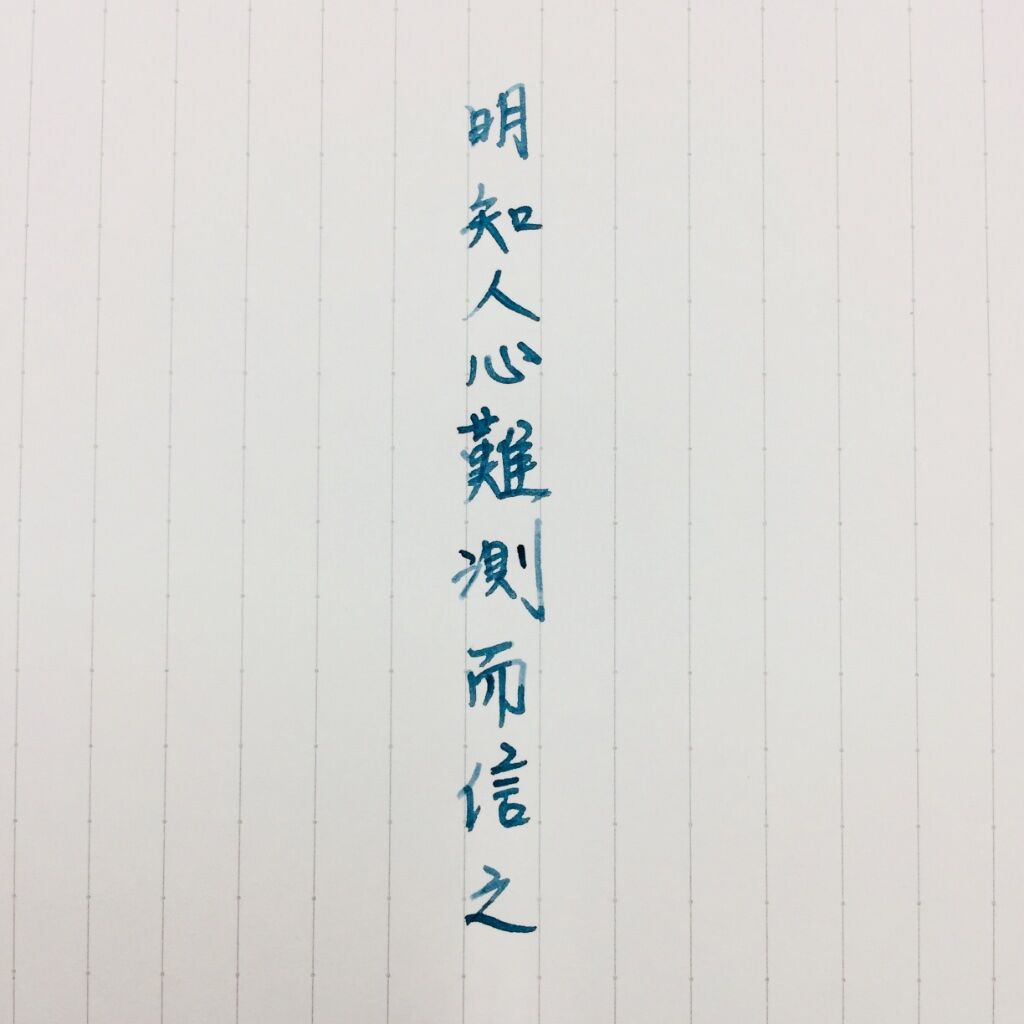 明知人心難測而信之